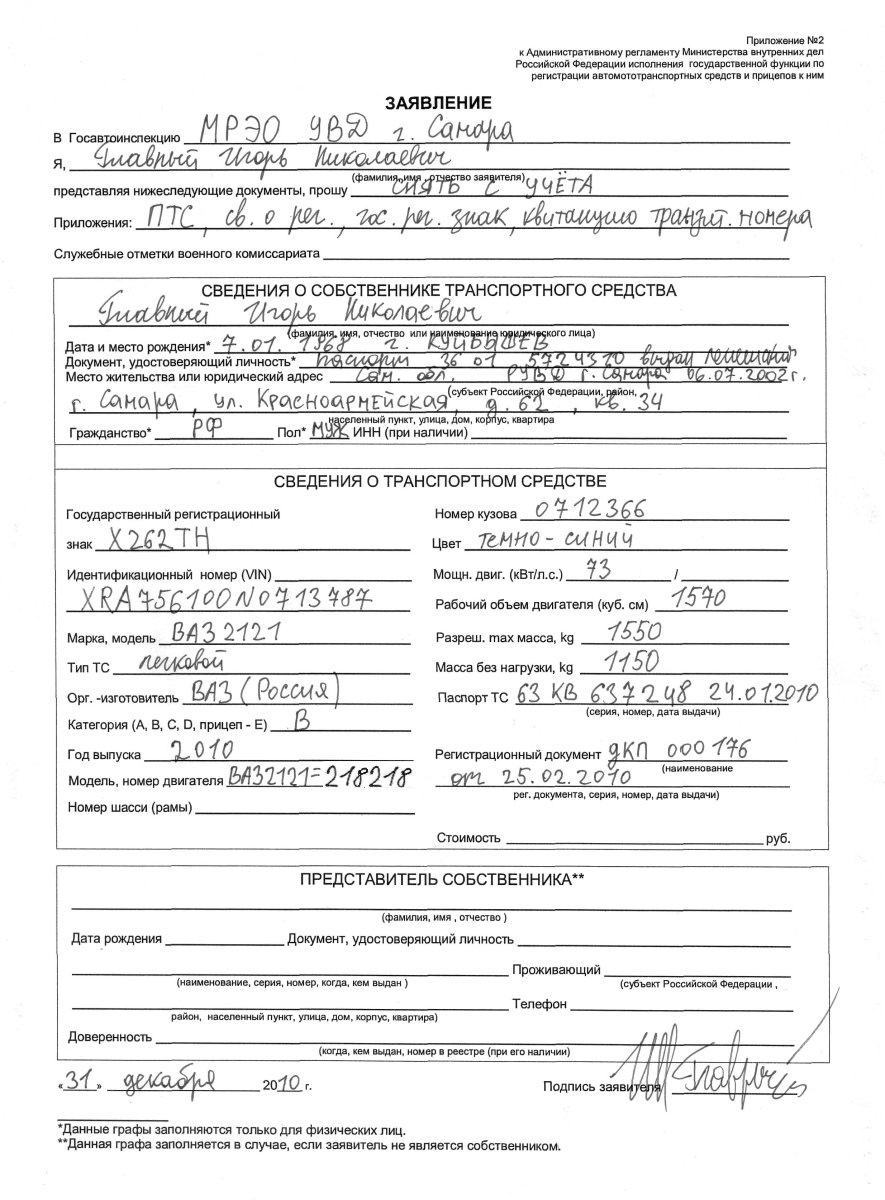 Приложение №2
к Административному регламенту Министерства внутренних дел
Российской Федерации исполнения государственной функции по
регистрации автомототранспортных средств и прицепов к ним
ЗАЯВЛЕНИЕ
В Госавтоинспекцию МРЭО УВД г. Самара
Я, Главный Игорь Николаевич
(фамилия, имя, отчество заявителя)
представляя нижеследующие документы, прошу СНЯТЬ С УЧЁТА
Приложения: ПТС, св. о рег., гос. рег. знак, квитанцию транзит. номера
Служебные отметки военного комиссариата
СВЕДЕНИЯ О СОБСТВЕННИКЕ ТРАНСПОРТНОГО СРЕДСТВА
Главный Игорь Николаевич
(фамилия, имя, отчество или наименование юридического лица)
Дата и место рождения* 7.01.1968 г. КУЙБЫШЕВ
Документ, удостоверяющий личность* паспорт 36 01 572437 выдан
Место жительства или юридический адрес Сам. обл. РУВД г. Самара 06.07.2002г.
(субъект Российской Федерации, район,
г. Самара, ул. Красноармейская, д. 62, кв. 34
населенный пункт, улица, дом, корпус, квартира
Гражданство* РФ Пол* МУЖ ИНН (при наличии)
СВЕДЕНИЯ О ТРАНСПОРТНОМ СРЕДСТВЕ
Государственный регистрационный
знак Х262ТН
Идентификационный номер (VIN)
XRA756100N0713787
Марка, модель ВАЗ 2121
Тип ТС легковой
Орг. -изготовитель ВАЗ (Россия)
Категория (А, В, С, D, прицеп - Е) В
Год выпуска 2010
Модель, номер двигателя ВАЗ2121=218218
Номер шасси (рамы)
Номер кузова 0712366
Цвет темно-синий
Мощн. двиг. (кВт/л.с.) 73 /
Рабочий объем двигателя (куб. см) 1570
Разреш. max масса, kg 1550
Масса без нагрузки, kg 1150
Паспорт ТС 63 КВ 637248 24.01.2010
(серия, номер, дата выдачи)
Регистрационный документ ДКП 000176
(наименование
от 25.02.2010
рег. документа, серия, номер, дата выдачи)
Стоимость руб.
ПРЕДСТАВИТЕЛЬ СОБСТВЕННИКА**
(фамилия, имя , отчество )
Дата рождения Документ, удостоверяющий личность
Проживающий
(наименование, серия, номер, когда, кем выдан ) (субъект Российской Федерации ,
Телефон
район, населенный пункт, улица, дом, корпус, квартира)
Доверенность
(когда, кем выдан, номер в реестре (при его наличии)
«31» декабря 2010 г. Подпись заявителя Главный
*Данные графы заполняются только для физических лиц.
**Данная графа заполняется в случае, если заявитель не является собственником.